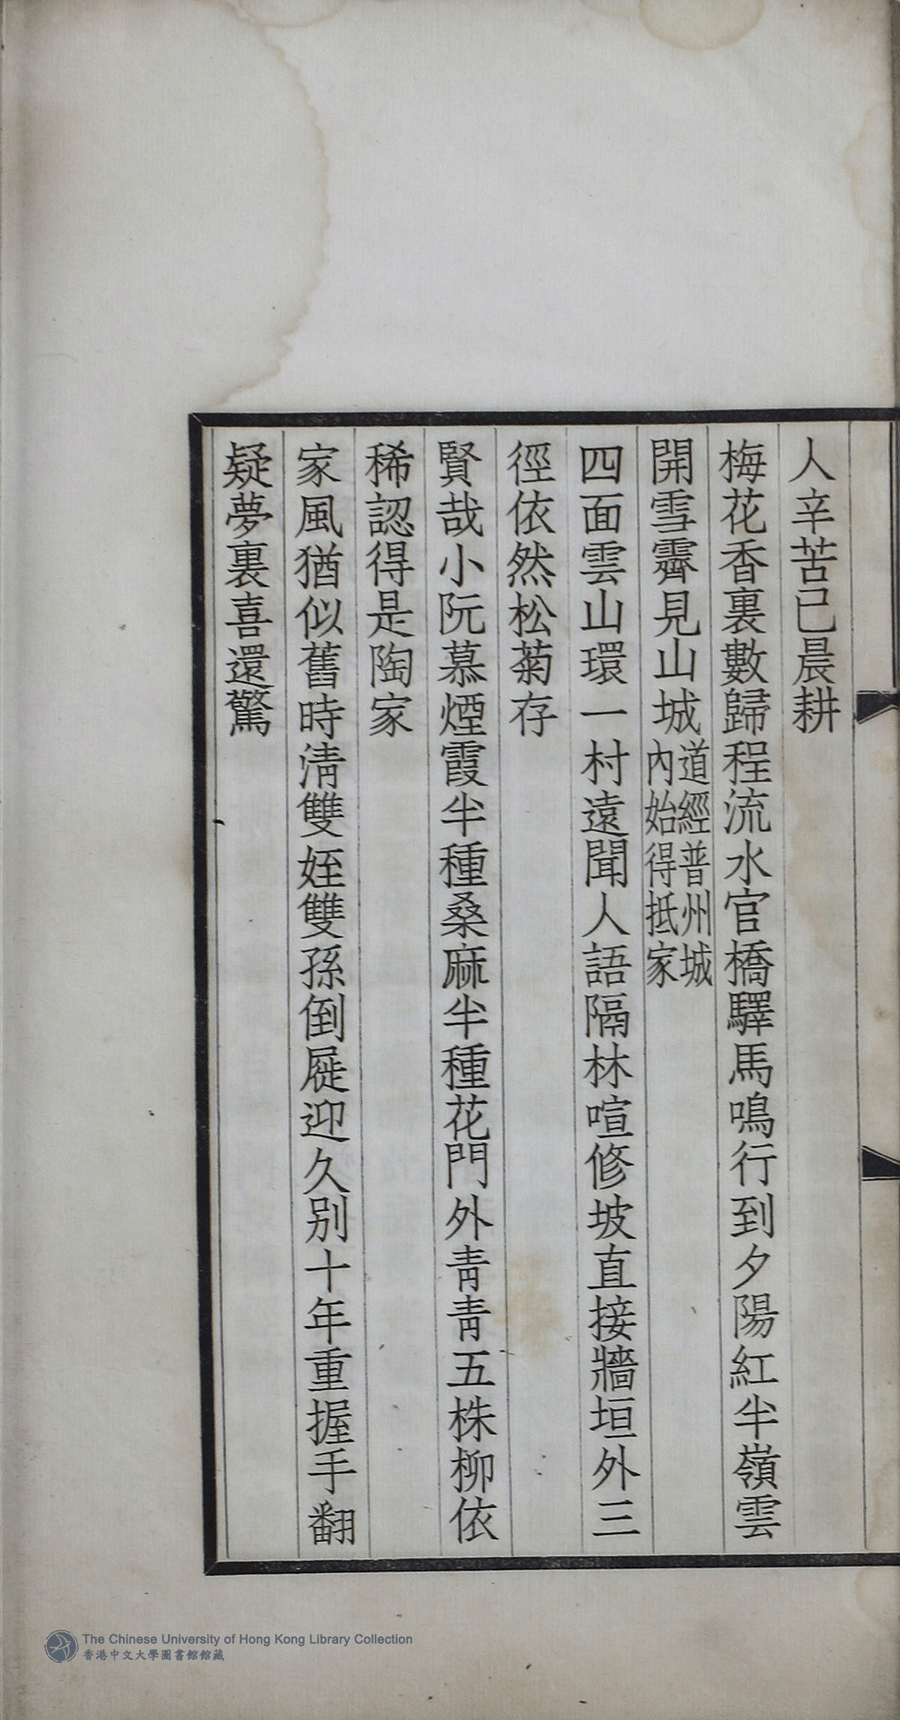 人辛苦已晨耕
梅花香裏數歸程流水官橋驛馬鳴行到夕陽紅半嶺雲
開雪霽見山城道經普州城內始得抵家
四面雲山環一村遠聞人語隔林喧修坡直接牆垣外三
徑依然松菊存
賢哉小阮慕煙霞半種桑麻半種花門外青青五株柳依
稀認得是陶家
家風猶似舊時清雙姪雙孫倒屣迎久別十年重握手翻
疑夢裏喜還驚
The Chinese University of Hong Kong Library Collection
香港中文大學圖書館館藏